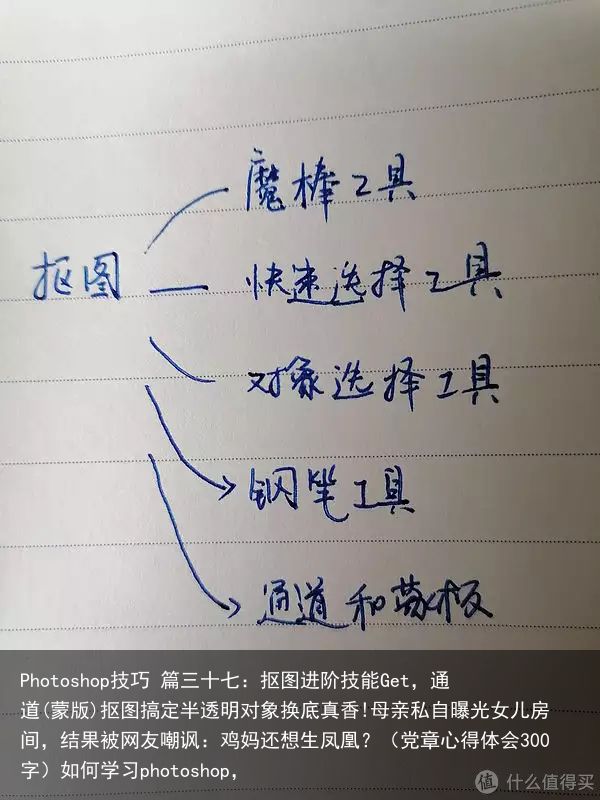 魔棒工具
抠图
快速选择工具
对象选择工具
钢笔工具
通道和蒙板
Photoshop技巧 篇三十七：抠图进阶技能Get，通
道(蒙版)抠图搞定半透明对象换底真香!母亲私自曝光女儿房
间，结果被网友嘲讽：鸡妈还想生凤凰？（党章心得体会300
字）如何学习photoshop，
值 什么值得买